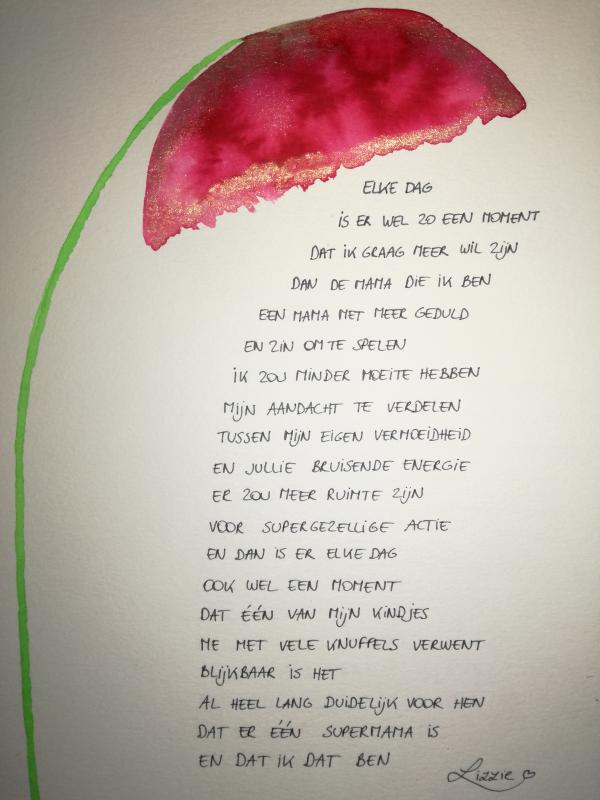 ELKE DAG
IS ER WEL ZO EEN MOMENT
DAT IK GRAAG MEER WIL ZIJN
DAN DE MAMA DIE IK BEN
EEN MAMA MET MEER GEDULD
EN ZIN OM TE SPELEN
IK ZOU MINDER MOEITE HEBBEN
MIJN AANDACHT TE VERDELEN
TUSSEN MIJN EIGEN VERMOEIDHEID
EN JULLIE BRUISENDE ENERGIE
ER ZOU MEER RUIMTE ZIJN
VOOR SUPERGEZELLIGE ACTIE
EN DAN IS ER ELKE DAG
OOK WEL EEN MOMENT
DAT ÉÉN VAN MIJN KINDJES
ME MET VELE KNUFFELS VERWENT
BLIJKBAAR IS HET
AL HEEL LANG DUIDELIJK VOOR HEN
DAT ER ÉÉN SUPERMAMA IS
EN DAT IK DAT BEN
Lizzie ♡